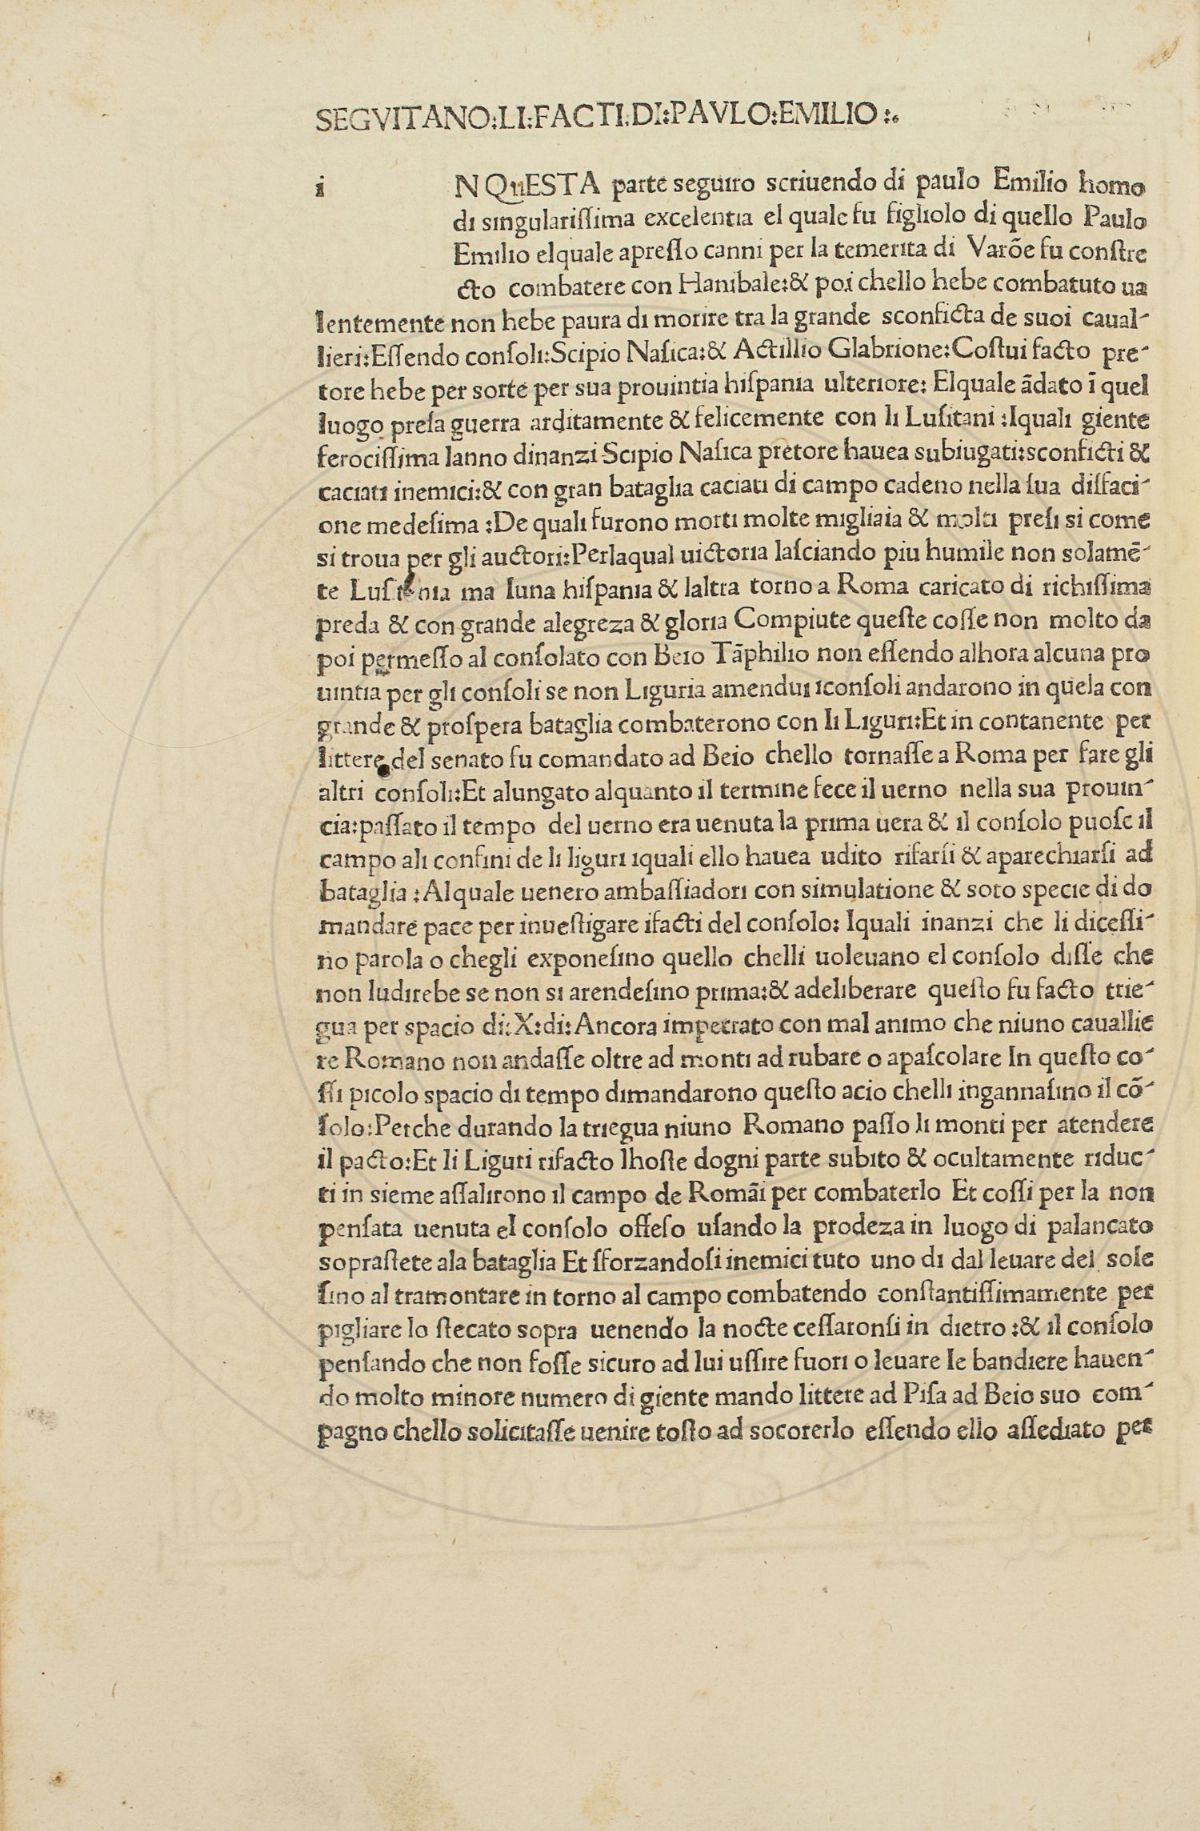 SEGVITANO:LI:FACTI:DI:PAVLO:EMILIO :.
i NQuESTA parte seguiro scriuendo di paulo Emilio homo
di singularissima excelentia el quale fu figliolo di quello Paulo
Emilio elquale apresso canni per la temerita di Varõe fu constre
cto combatere con Hanibale:& poi chello hebe combatuto ua
lentemente non hebe paura di morire tra la grande sconficta de suoi caual-
lieri:Essendo consoli:Scipio Nasica:& Actillio Glabrione:Costui facto pre-
tore hebe per sorte per sua prouintia hispania ulteriore: Elquale ãdato ĩ quel
luogo presa guerra arditamente & felicemente con li Lusitani :Iquali giente
ferocissima lanno dinanzi Scipio Nasica pretore hauea subiugati:sconficti &
caciati inemici:& con gran bataglia caciati di campo cadeno nella sua disfaci-
one medesima :De quali furono morti molte migliaia & molti presi si come
si troua per gli auctori:Perlaqual uictoria lasciando piu humile non solamẽ-
te Lusitania ma luna hispania & laltra torno a Roma caricato di richissima
preda & con grande alegreza & gloria Compiute queste cosse non molto da
poi permesso al consolato con Beio Tãphilio non essendo alhora alcuna pro
uintia per gli consoli se non Liguria amendui iconsoli andarono in quela con
grande & prospera bataglia combaterono con li Liguri:Et in contanente per
littere del senato fu comandato ad Beio chello tornasse a Roma per fare gli
altri consoli:Et alungato alquanto il termine fece il uerno nella sua prouin-
cia:passato il tempo del uerno era uenuta la prima uera & il consolo puose il
campo ali confini de li liguri iquali ello hauea udito rifarsi & aparechiarsi ad
bataglia :Alquale uenero ambassiadori con simulatione & soto specie di do
mandare pace per inuestigare ifacti del consolo: Iquali inanzi che li dicessi-
no parola o chegli exponesino quello chelli uoleuano el consolo disse che
non ludirebe se non si arendesino prima:& adeliberare questo fu facto trie-
gua per spacio di:X:di:Ancora impetrato con mal animo che niuno cauallie
re Romano non andasse oltre ad monti ad rubare o apascolare In questo co-
ssi picolo spacio di tempo dimandarono questo acio chelli ingannasino il cõ-
solo:Perche durando la triegua niuno Romano passo li monti per atendere
il pacto:Et li Liguri rifacto lhoste dogni parte subito & ocultamente riduc-
ti in sieme assalirono il campo de Romãi per combaterlo Et cossi per la non
pensata uenuta el consolo offeso usando la prodeza in luogo di palancato
soprastete ala bataglia Et sforzandosi inemici tuto uno di dal leuare del sole
sino al tramontare in torno al campo combatendo constantissimamente per
pigliare lo stecato sopra uenendo la nocte cessaronsi in dietro :& il consolo
pensando che non fosse sicuro ad lui ussire fuori o leuare le bandiere hauen-
do molto minore numero di giente mando littere ad Pisa ad Beio suo com-
pagno chello solicitasse uenire tosto ad socorerlo essendo ello assediato per